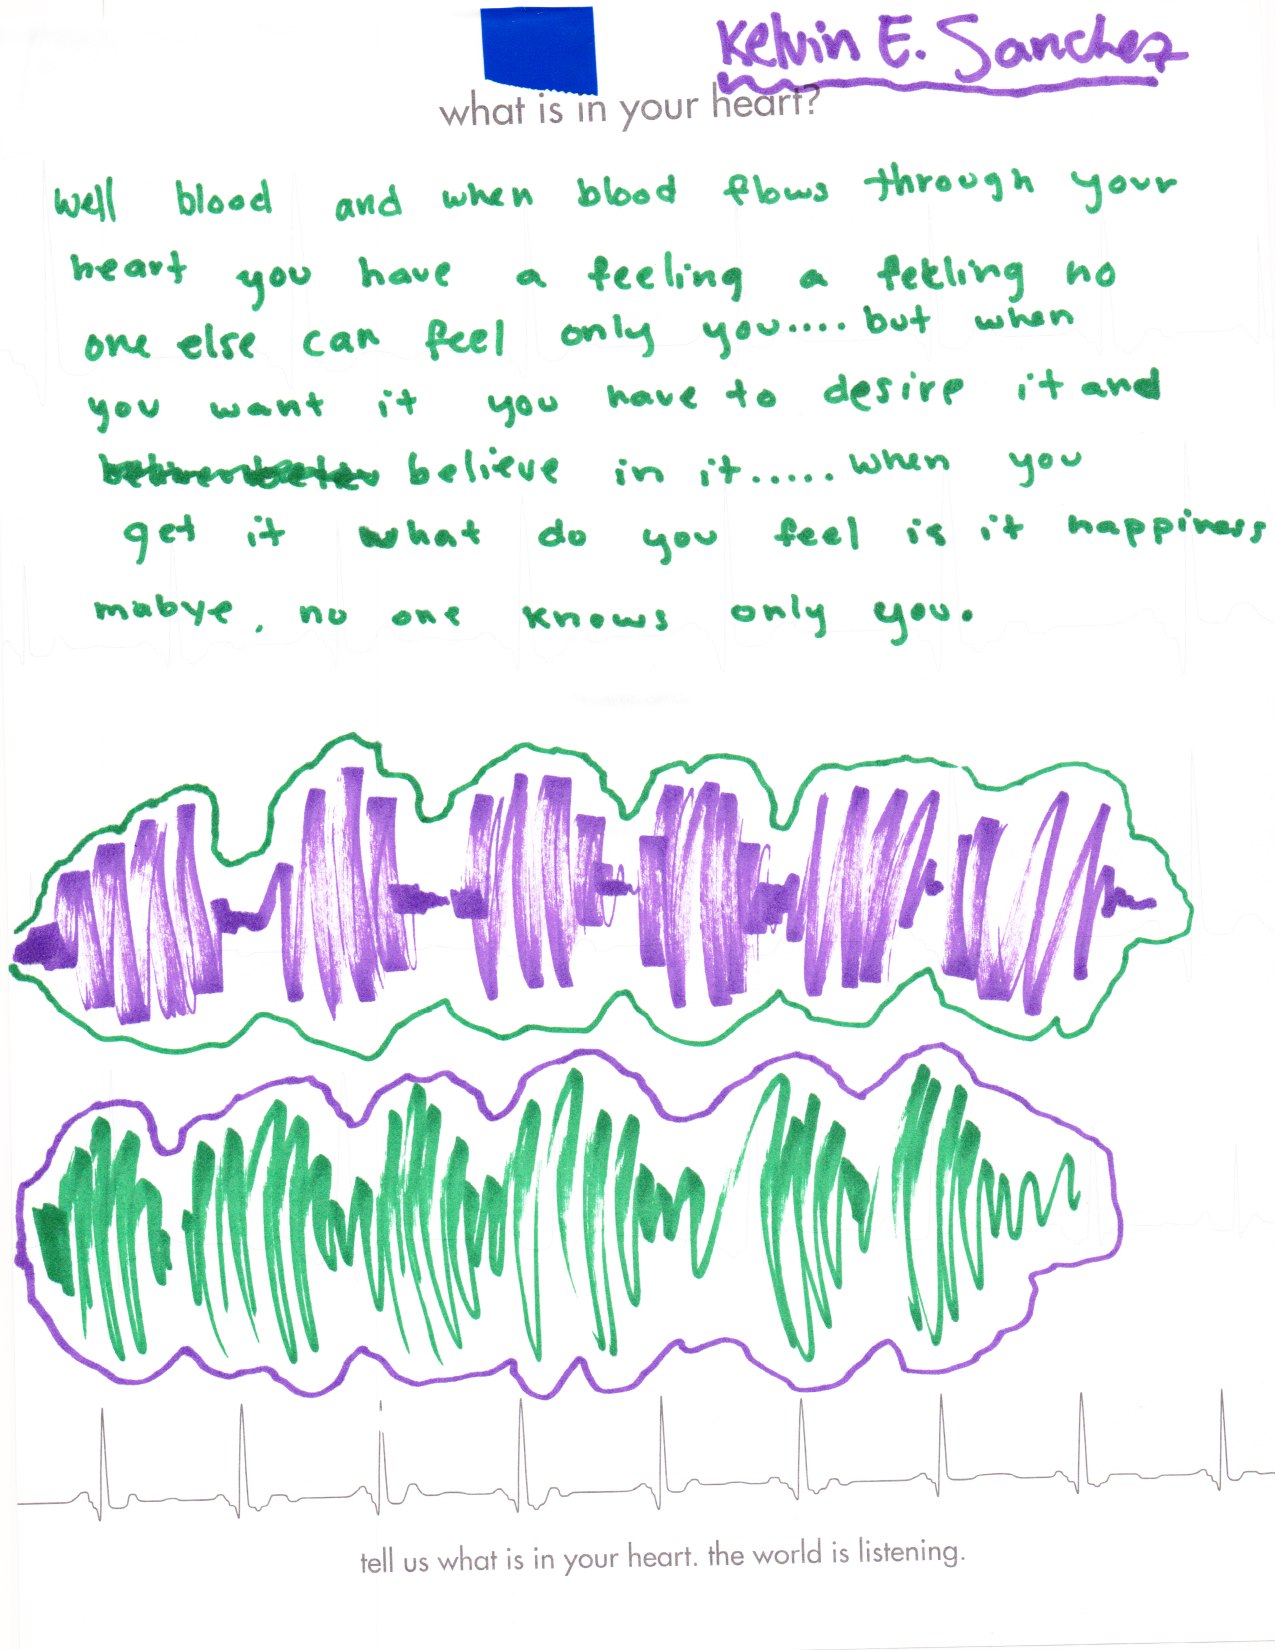 Kelvin E. Sanchez
what is in your heart?
Well blood and when blood flows through your
heart you have a feeling a feeling no
one else can feel only you.... but when
you want it you have to desire it and
believe in it..... when you
get it what do you feel is it happiness
mabye, no one knows only you.
tell us what is in your heart. the world is listening.